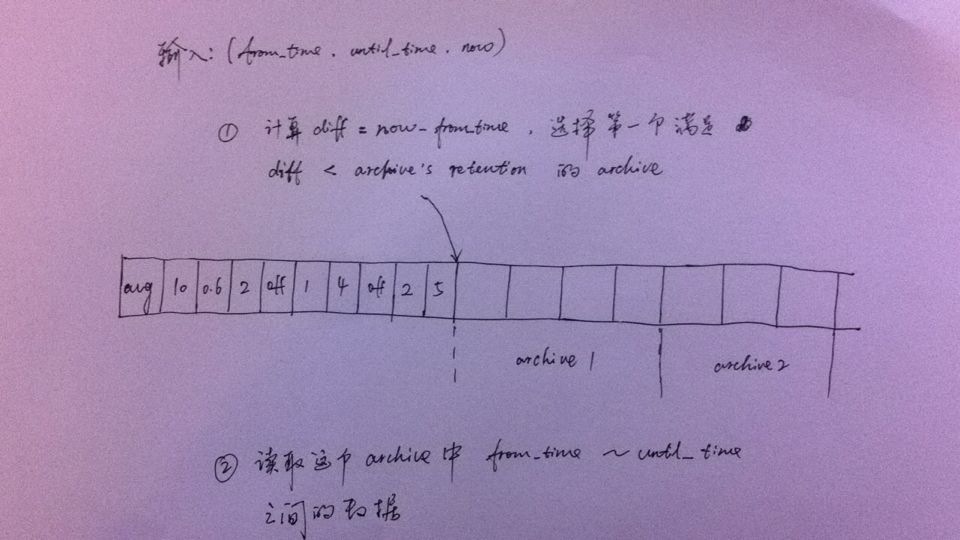 输入: (from_time, until_time, now)
① 计算 diff = now - from_time, 选择第一个满足
diff < archive's retention 的 archive
avg 10 0.6 2 off 1 4 off 2 5
archive 1 archive 2
② 读取这个 archive 中 from_time ~ until_time
之间的数据